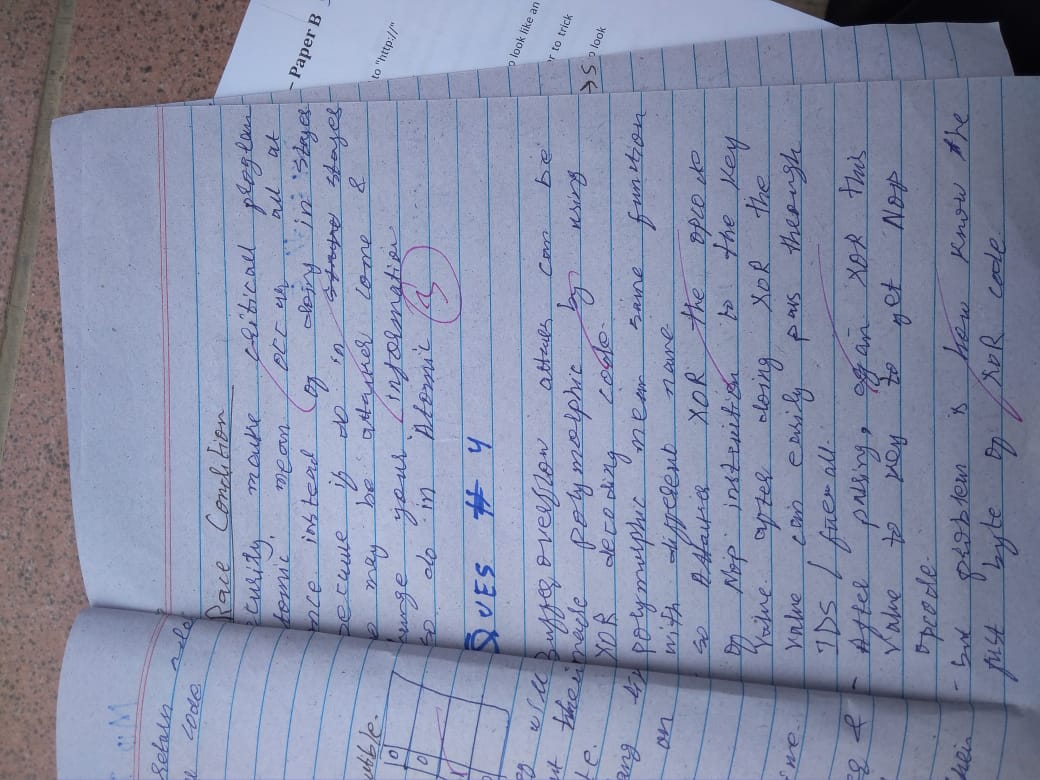 – Paper B
to "http://"
o look like an
or to trick
o look
Race Condition
curity, make critical program
tomic, mean occur all at
once instead of doing in stages
ecause if do in stages
e may be attacker come &
ange your information
so do in Atomic
3
QUES # 4
Buffer overflow attacks can be
made polymorphic by using
XOR decoding code.
polymorphic mean same function
with different name
so Attaker XOR the opcode
of Nop instruction to the key
Value after doing XOR the
value can easily pass through
IDS / firewall.
- After passing, again XOR this
value to key to get Nop
Opcode.
- but problem is how know the
first byte of XOR code
retain
code
utble.
0
te.
ang
on
&